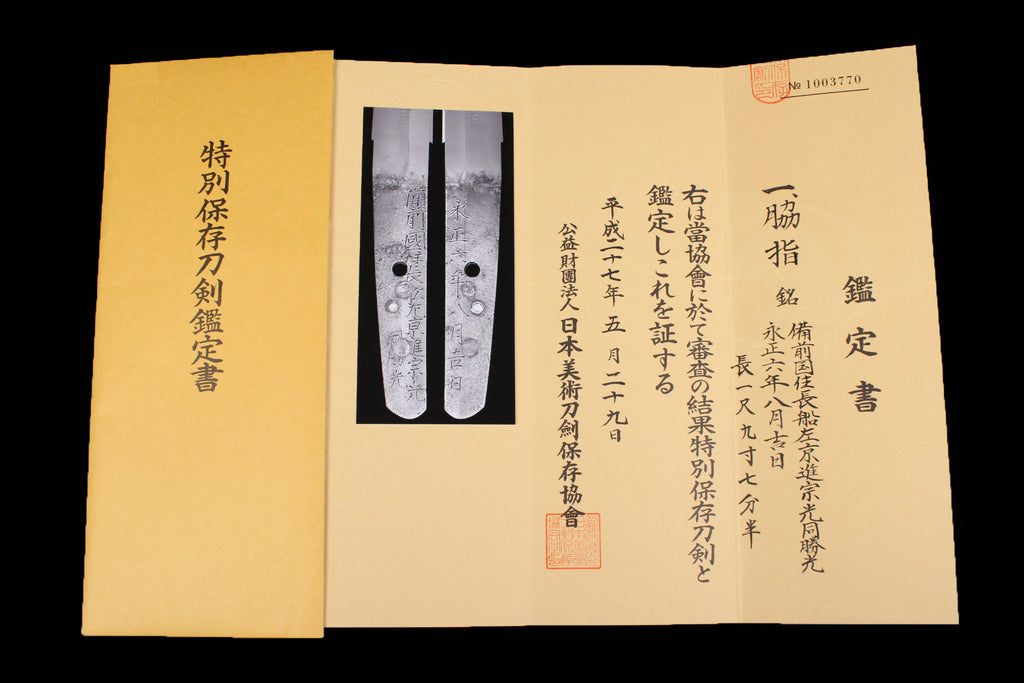 特別保存刀剣鑑定書
№ 1003770
鑑定書
一、脇指
銘
備前国住長船左京進宗光同勝光
永正六年八月吉日
長一尺九寸七分半
右は當協會に於て審査の結果特別保存刀剣と
鑑定しこれを証する
平成二十七年五月二十九日
公益財團法人日本美術刀劍保存協會
永正六年八月吉日
備前國住長船左京進宗光
同勝光